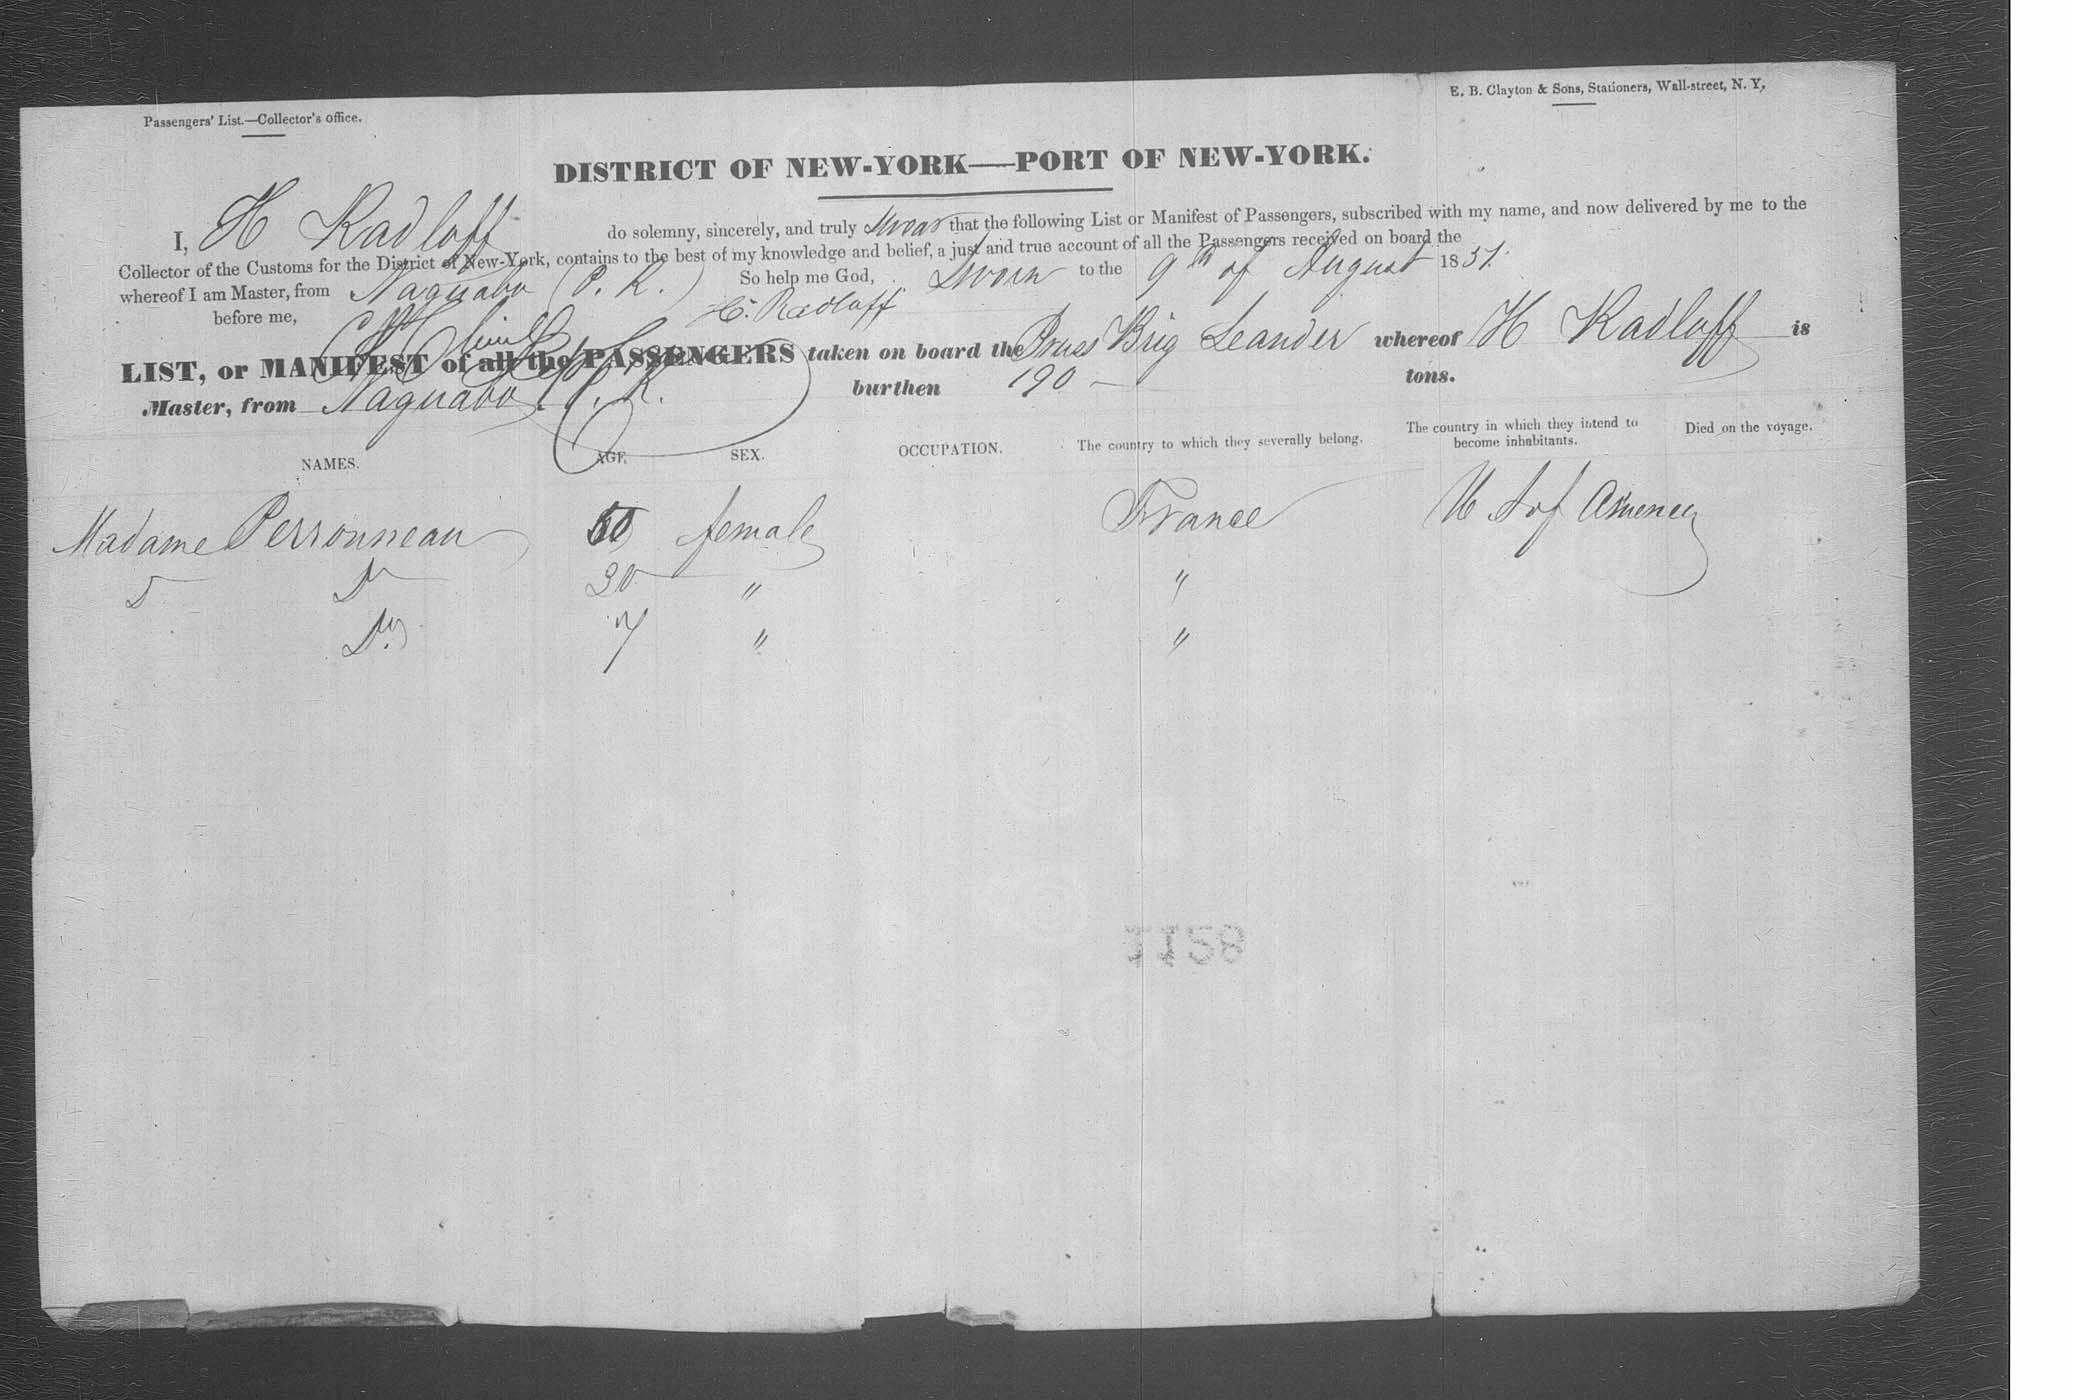 Passengers' List.—Collector's Office.
E. B. Clayton & Sons, Stationers, Wall-street, N. Y.
DISTRICT OF NEW-YORK—PORT OF NEW-YORK.
I, H Radloff do solemny, sincerely, and truly swear that the following List or Manifest of Passengers, subscribed with my name, and now delivered by me to the
Collector of the Customs for the District of New-York, contains to the best of my knowledge and belief, a just and true account of all the Passengers received on board the
whereof I am Master, from Naguabo (P. R.) So help me God, Sworn to the 9th of August 1851.
before me, H. Radloff
LIST, or MANIFEST of all the PASSENGERS taken on board the Pruss Brig Leander whereof H Radloff is
Master, from Naguabo P. R. burthen 190 — tons.
NAMES. AGE. SEX. OCCUPATION. The country to which they severally belong. The country in which they intend to become inhabitants. Died on the voyage.
Madame Perronneau female France U S of America
D Do 30 " "
Do 7 " "
1128